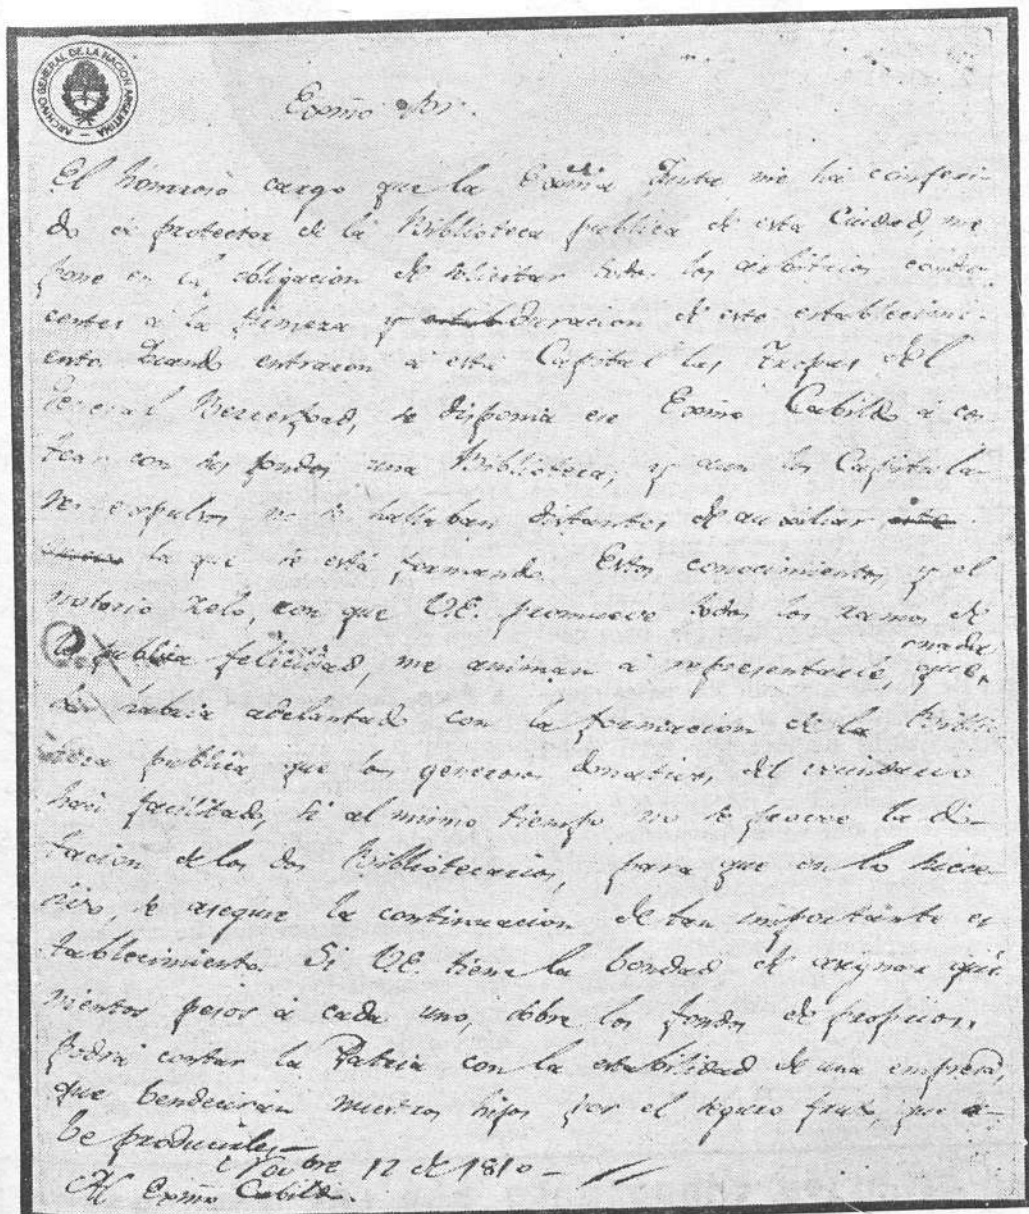 ARCHIVO GENERAL DE LA NACION ARGENTINA
Exmo Sor.
El honroso cargo que la Exma Junta me há conferi-
do de protector de la Biblioteca publica de esta Ciudad, me
pone en la obligacion de solicitar todos los arbitrios condu-
centes á la firmeza y duracion de este establecimi-
ento. Quando entraron á esta Capital las Tropas del
General Berresford, se disponia ese Exmo Cabildo á cos-
tear con sus fondos una Biblioteca; y aun los Capitula-
res expulsos no se hallaban distantes de auxiliar
la que se está formando. Estos conocimientos y el
notorio zelo, con que V.E. promueve todos los ramos de
la publica felicidad, me animan á representarle, que,
nada
se habria adelantado con la formacion de la Biblio-
teca publica que los generosos donativos del vecindario
han facilitado, si al mismo tiempo no se provee la do-
tacion de los dos Bibliotecarios, para que en lo succe-
sivo, se asegure la continuacion de tan importante es
tablecimiento. Si V.E. tiene la bondad de asignar qui-
nientos pesos á cada uno, sobre los fondos de propios,
podrá contar la Patria con la estabilidad de una empresa,
que bendecirán nuestros hijos por el seguro fruto, que de-
be producirles—
Novbre 12 de 1810—
Al Exmo Cabildo.